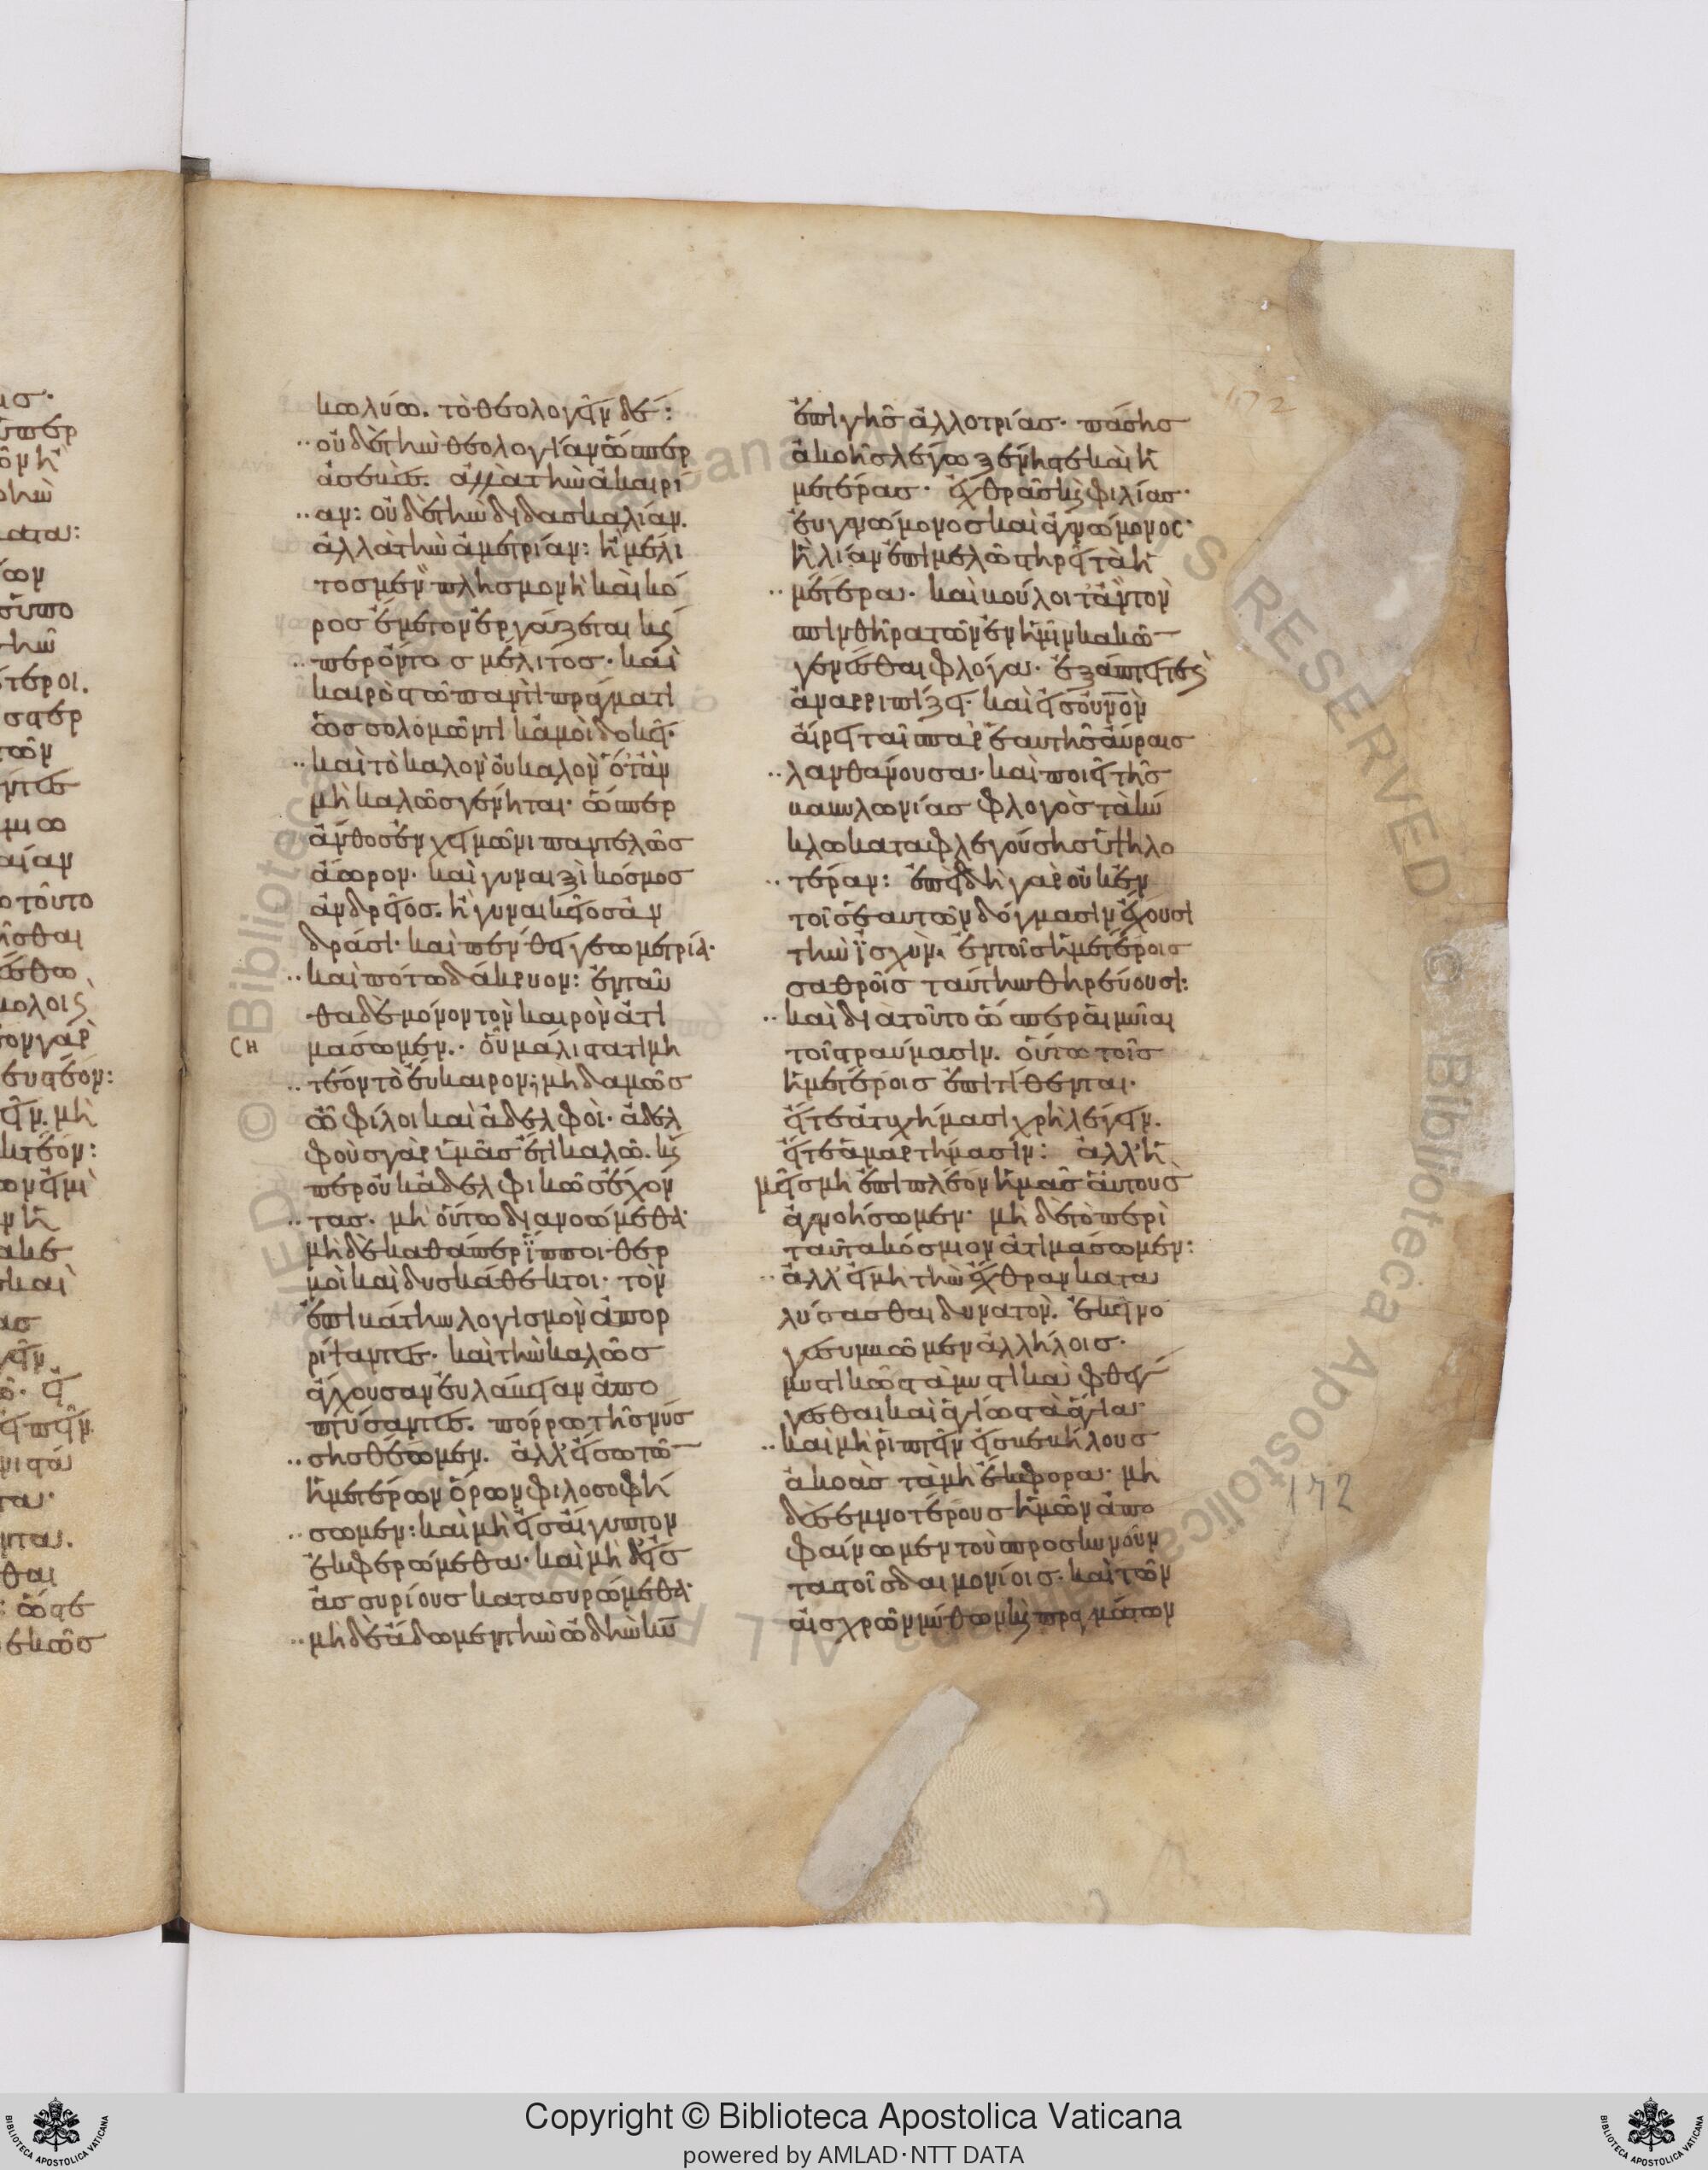 ισ·
ὥσπερ
ματα:
τεροι.
σπερ
ντεσ
τοῦτο
σθαι
έσθω
γὰρ
κτέον:
καὶ
νται.
θαι
κωλύω. τὸ θεολογεῖν δέ:
οὐδὲ τὴν θεολογίαν ὥσπερ
ἀσεβὲσ. ἀλλὰ τὴν ἀκαιρί
αν: οὐδὲ τὴν διδασκαλίαν.
ἀλλὰ τὴν ἀμετρίαν: ἢ μέλι
τοσ μὲν πλησμονὴ καὶ κό
ροσ ἔμετον ἐργάζεται καί
περ ὄντοσ μέλιτοσ· καὶ
καιρὸσ τῶ παντὶ πράγματι
ὡσ σολομῶντι κἀμοὶ δοκεῖ·
καὶ τὸ καλὸν οὐ καλὸν ὅταν
μὴ καλῶσ γένηται· ὥσπερ
ἄνθοσ ἐν χειμῶνι παντελῶσ
ἄωρον· καὶ γυναιξὶ κόσμοσ
ἀνδρεῖοσ. ἢ γυναικεῖοσ ἀν
δράσι· καὶ πένθει γεωμετρία·
καὶ πότω δάκρυον: ἐνταῦ
θα δὲ μόνον τὸν καιρὸν ἀτι
CH
μάσωμεν.· οὗ μάλιστα τιμη
τέον τὸ εὔκαιρον; μηδαμῶσ
ὦ φίλοι καὶ ἀδελφοὶ· ἀδελ
φοὺσ γὰρ ὑμᾶσ ἔτι καλῶ. καί
περ οὐκ ἀδελφικῶσ ἔχον
τασ· μὴ οὕτω διανοώμεθα·
μηδὲ καθάπερ ἵπποι θερ
μοὶ καὶ δυσκάθεκτοι· τὸν
ἐπιβάτην λογισμὸν ἀπορ
ρίψαντεσ· καὶ τὴν καλῶσ
ἄγχουσαν εὐλάβειαν ἀπο
πτύσαντεσ. πόρρω τῆσ νύσ
σησ θέωμεν. ἀλλ' εἴσω τῶν
ἡμετέρων ὅρων φιλοσοφή
σωμεν: καὶ μὴ εἰσ αἴγυπτον
ἐκφερώμεθα· καὶ μὴ δ' εἰσ
ἀσσυρίουσ κατασυρώμεθα·
μὴ δὲ ἄδωμεν τὴν ὠδὴν κυ
172
ἐπὶ γῆσ ἀλλοτρίασ· πάσησ
ἀκοῆσ λέγω ξένησ τε καὶ ἡ
μετέρασ· ἐχθρᾶσ καὶ φιλίασ·
εὐγνώμονοσ καὶ ἀγνώμονοσ·
ἣ λίαν ἐπιμελῶσ τηρεῖ τὰ ἡ
μέτερα· καὶ βούλοιτ' ἂν τὸν
σπινθῆρα τῶν ἐν ἡμῖν κακῶν
γενέσθαι φλόγα· ἐξάπτει τε
ἀναρριπίζει· καὶ εἰσ οὐνὸν
αἴρει ταῖσ παρ' ἑαυτῆσ αὔραισ
λανθάνουσα· καὶ ποιεῖ τῆσ
βαβυλωνίασ φλογὸσ τὰ κύ
κλω καταφλεγούσησ ὑψηλο
τέραν: ἐπειδὴ γὰρ οὐκ ἐν
τοῖσ ἑαυτῶν δόγμασιν ἔχουσι
τὴν ἰσχὺν. ἐν τοῖσ ἡμετέροισ
σαθροῖσ ταύτην θηρεύουσι:
καὶ διὰ τοῦτο ὥσπερ αἱ μυῖαι
τοῖσ τραύμασιν. οὕτω τοῖσ
ἡμετέροισ ἐπιτίθενται·
εἴτε ἀτυχήμασι χρὴ λέγειν.
εἴτε ἁμαρτήμασιν: ἀλλ' ἡ
μεῖσ μὴ ἐπὶ πλέον ἡμᾶσ αὐτοὺσ
ἀγνοήσωμεν· μὴ δὲ τὸ περὶ
ταῦτα κόσμιον ἀτιμάσωμεν:
ἀλλ' εἰ μὴ τὴν ἔχθραν κατα
λύσασθαι δυνατὸν. ἐκεῖνο
γε συμβῶμεν ἀλλήλοισ·
μυστικῶσ τὰ μυστικὰ φθέγ
γεσθαι καὶ ἁγίωσ τὰ ἅγια·
καὶ μὴ ῥίπτειν εἰσ βεβήλουσ
ἀκοὰσ τὰ μὴ ἔκφορα· μὴ
δὲ σεμνοτέρουσ ἡμῶν ἀπο
φαίνωμεν τοὺσ προσκυνοῦν
τασ τοῖσ δαιμονίοισ· καὶ τῶν
αἰσχρῶν μύθων καὶ πραγμάτων
172
Copyright © Biblioteca Apostolica Vaticana
powered by AMLAD·NTT DATA